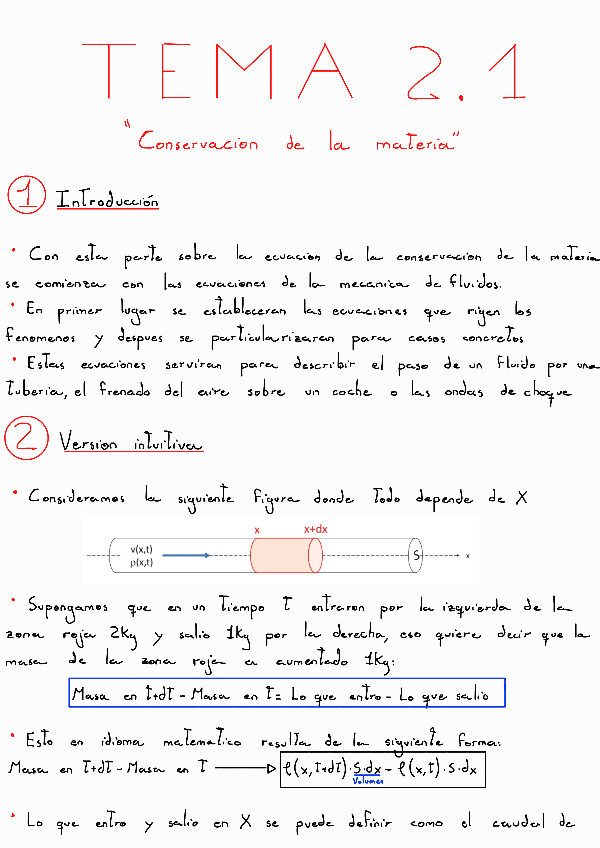 TEMA 2.1
"Conservacion de la materia"
1 Introducción
• Con esta parte sobre la ecuacion de la conservacion de la materia
se comienza con las ecuaciones de la mecanica de fluidos.
• En primer lugar se estableceran las ecuaciones que rigen los
fenomenos y despues se particularizaran para casos concretos
• Estas ecuaciones serviran para describir el paso de un fluido por una
tuberia, el frenado del aire sobre un coche o las ondas de choque
2 Version intuitiva
• Consideramos la siguiente figura donde todo depende de X
x x+dx
v(x,t)
ρ(x,t)
S x
• Supongamos que en un tiempo t entraron por la izquierda de la
zona roja 2Kg y salio 1Kg por la derecha, eso quiere decir que la
masa de la zona roja a aumentado 1Kg:
Masa en t+dt - Masa en t = Lo que entro - Lo que salio
• Esto en idioma matematico resulta de la siguiente forma:
Masa en t+dt - Masa en t → ρ(x,t+dt)·S·dx - ρ(x,t)·S·dx
Volumen
• Lo que entro y salio en X se puede definir como el caudal de